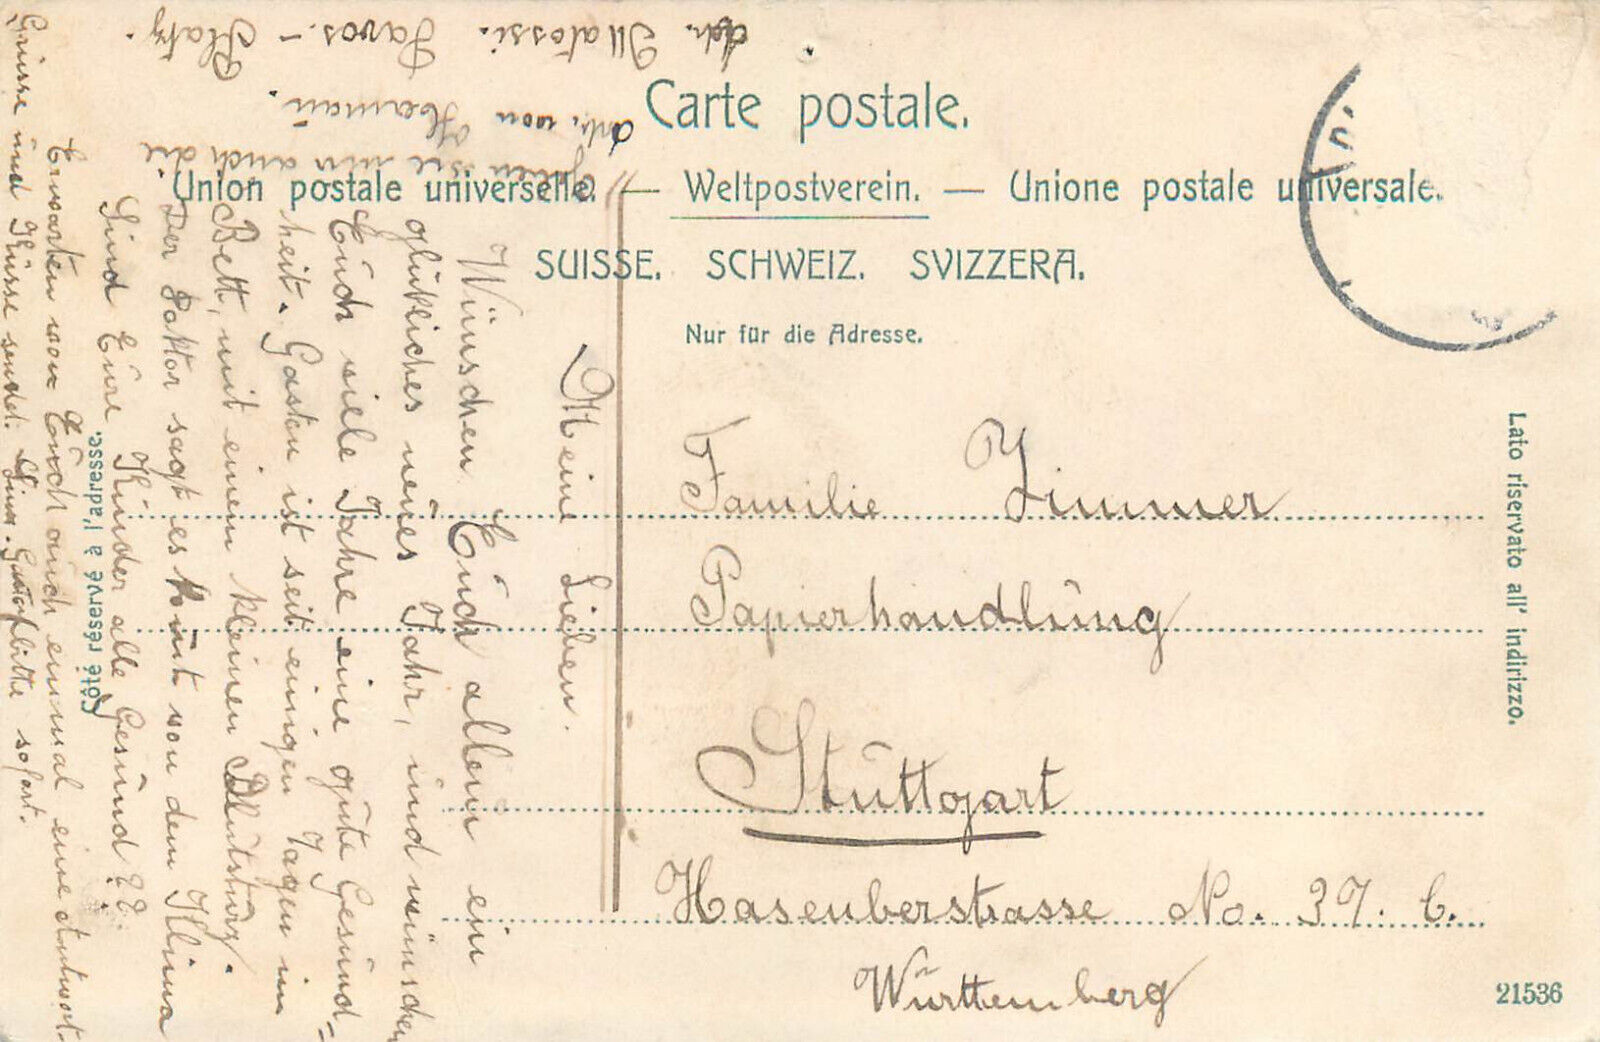 Carte postale.
Union postale universelle. — Weltpostverein. — Unione postale universale.
SUISSE. SCHWEIZ. SVIZZERA.
Nur für die Adresse.
Côté réservé à l'adresse.
Lato riservato all' indirizzo.
Familie Zimmer
Papierhandlung
Stuttgart
Hasenberstrasse No. 37. b.
Württemberg
21536
Meine Lieben.
Wünschen Euch allen ein
glükliches neues Jahr, und wünschen
Euch viele Jahre eine gute Gesund-
heit. Gaston ist seit einigen Tagen im
Bett, mit einem kleinen Blutsturz.
Der Doktor sagt es komt von dem Klima
Sind Eure Kinder alle Gesund??
Erwarten von Euch auch enmal eine Antwort.
Grüsse und Küsse sendet. Gaston bitte sofort.
sie nun auch die
von Hermann.
Adr. Matossi. Davos.- Platz.